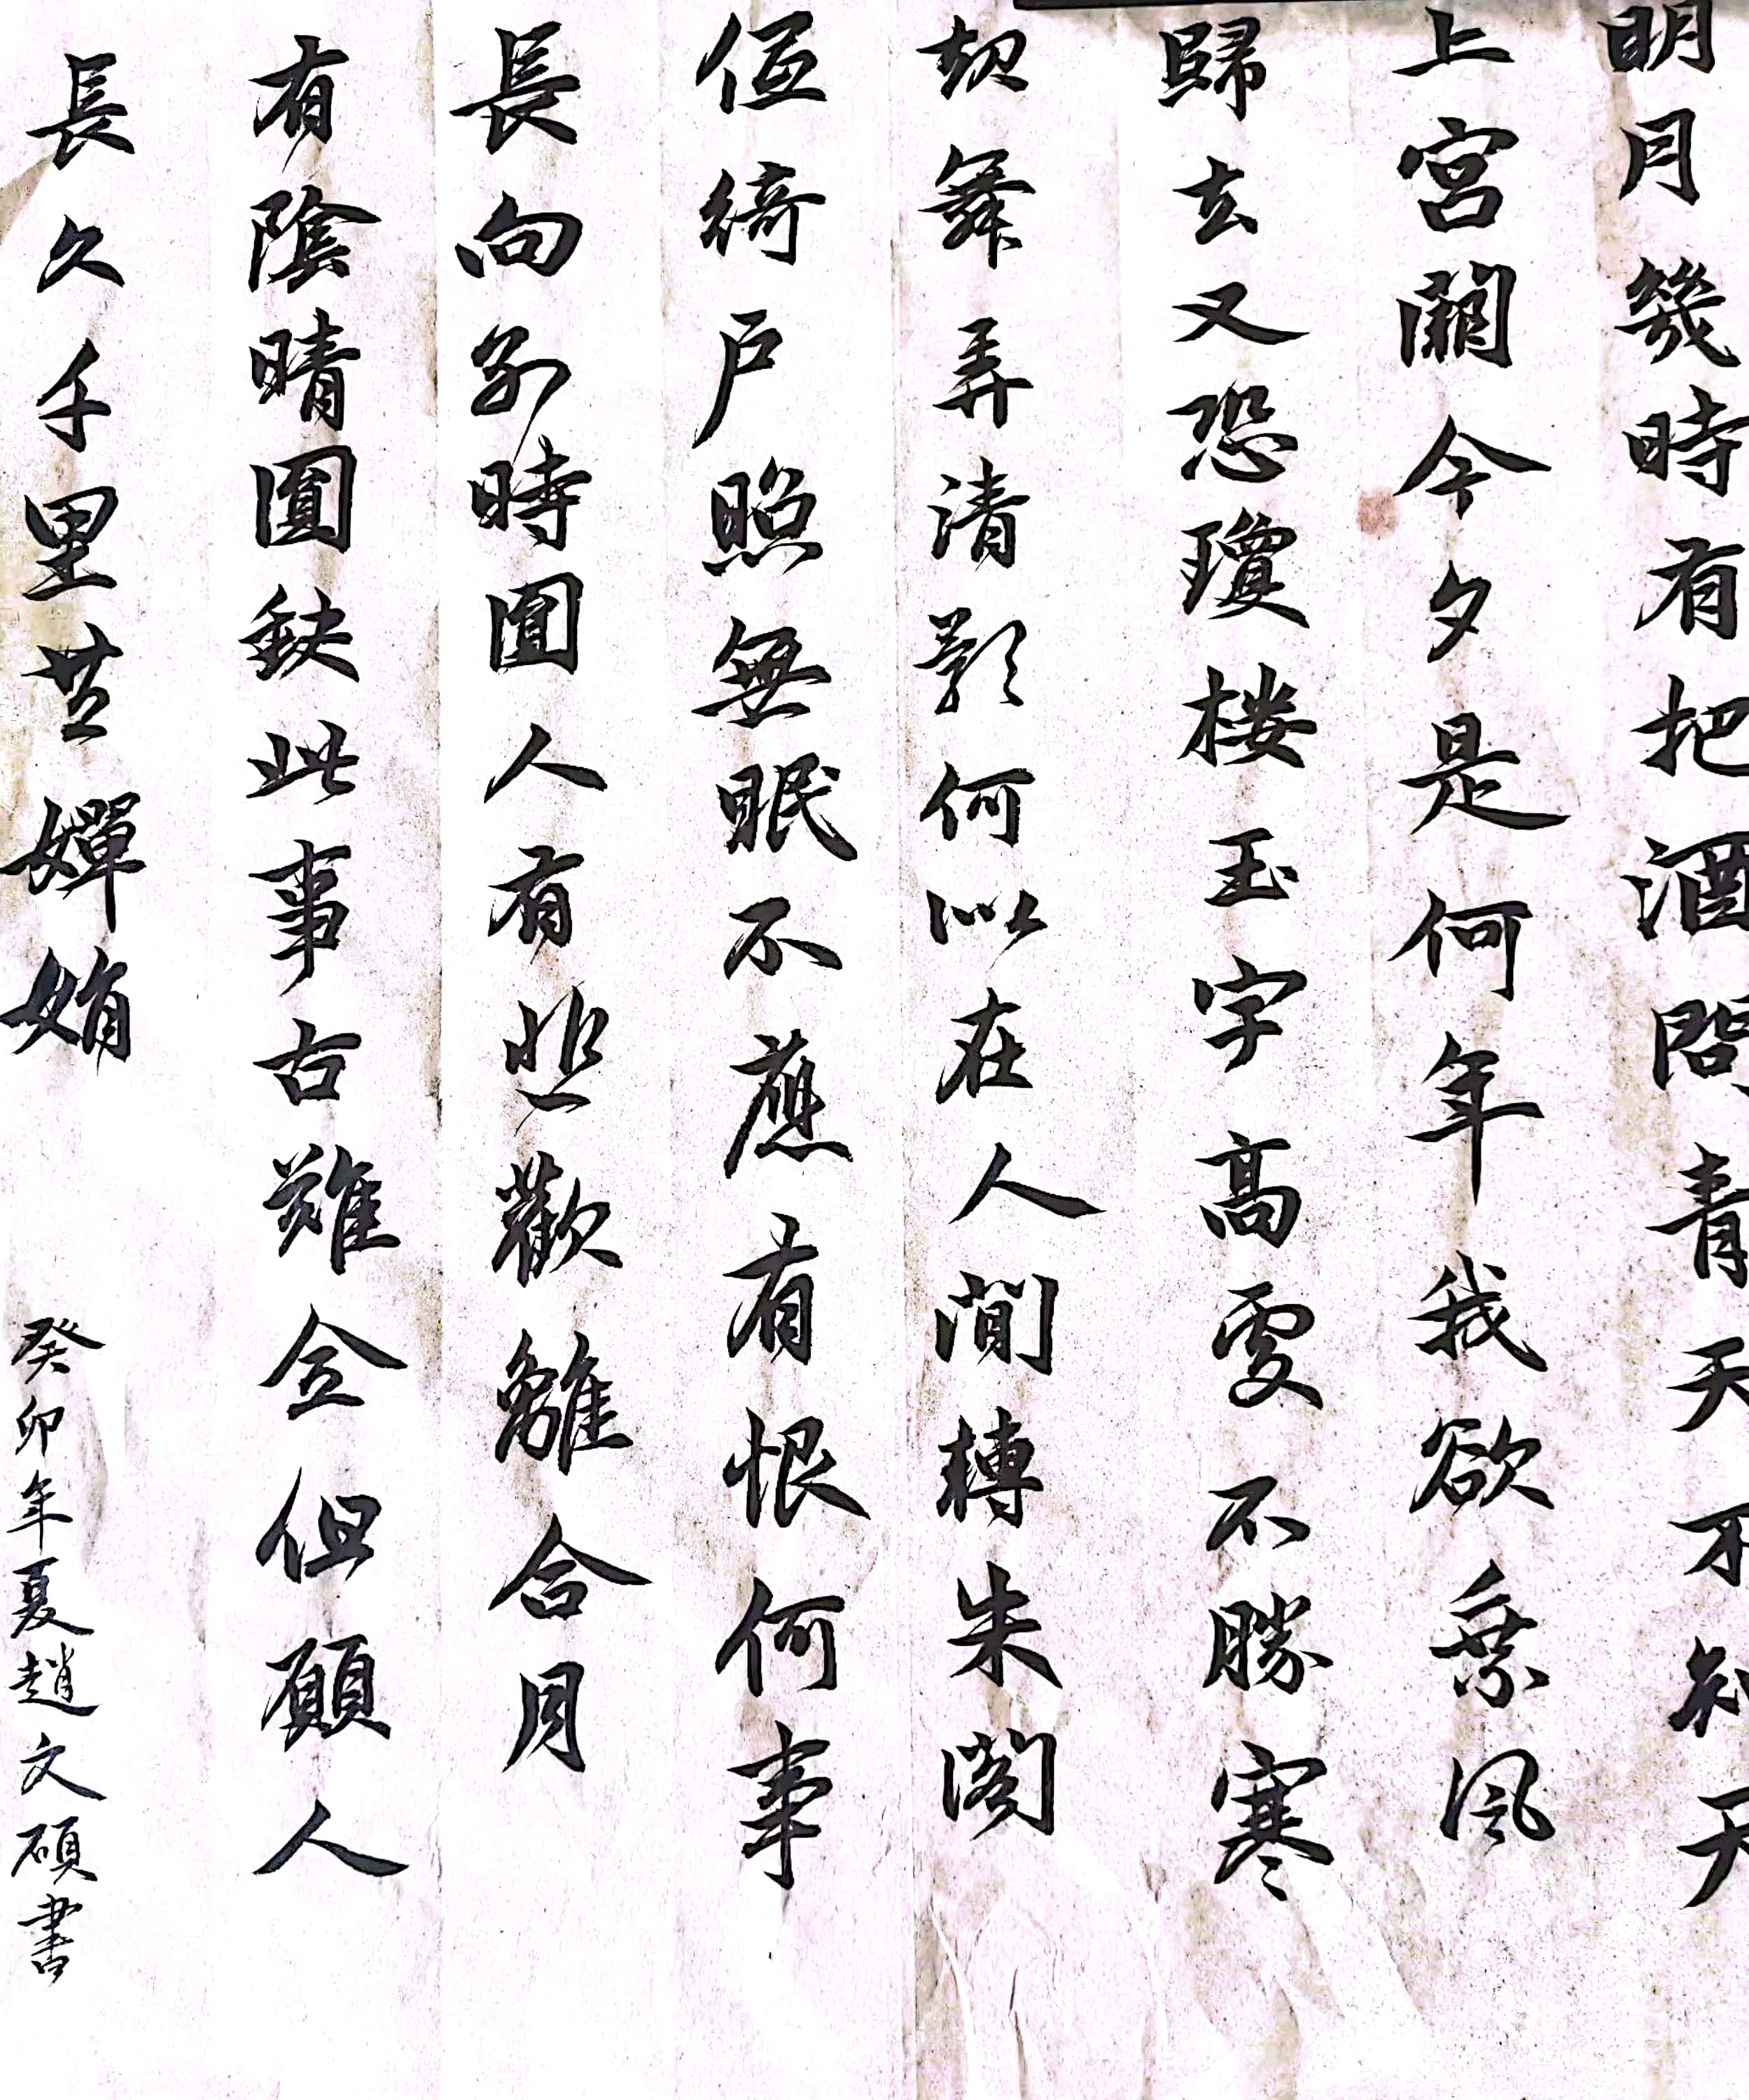 明月幾時有把酒問青天不知天
上宮闕今夕是何年我欲乘風
歸去又恐瓊楼玉宇高處不勝寒
起舞弄清影何似在人間轉朱閣
低綺户照無眠不應有恨何事
長向別時圓人有悲歡離合月
有陰晴圓缺此事古難全但願人
長久千里共嬋娟
癸卯年夏趙文碩書